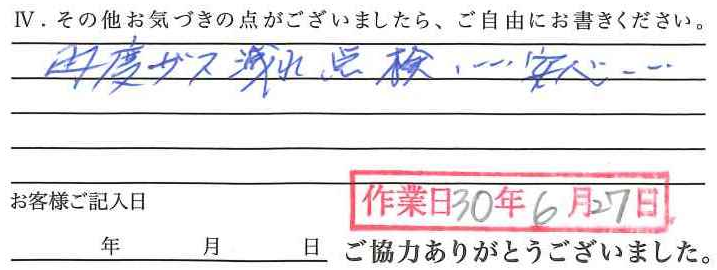 Ⅳ．その他お気づきの点がございましたら、ご自由にお書きください。
再度ガス漏れ点検、…安心…
お客様ご記入日
作業日30年6月27日
年 月 日 ご協力ありがとうございました。